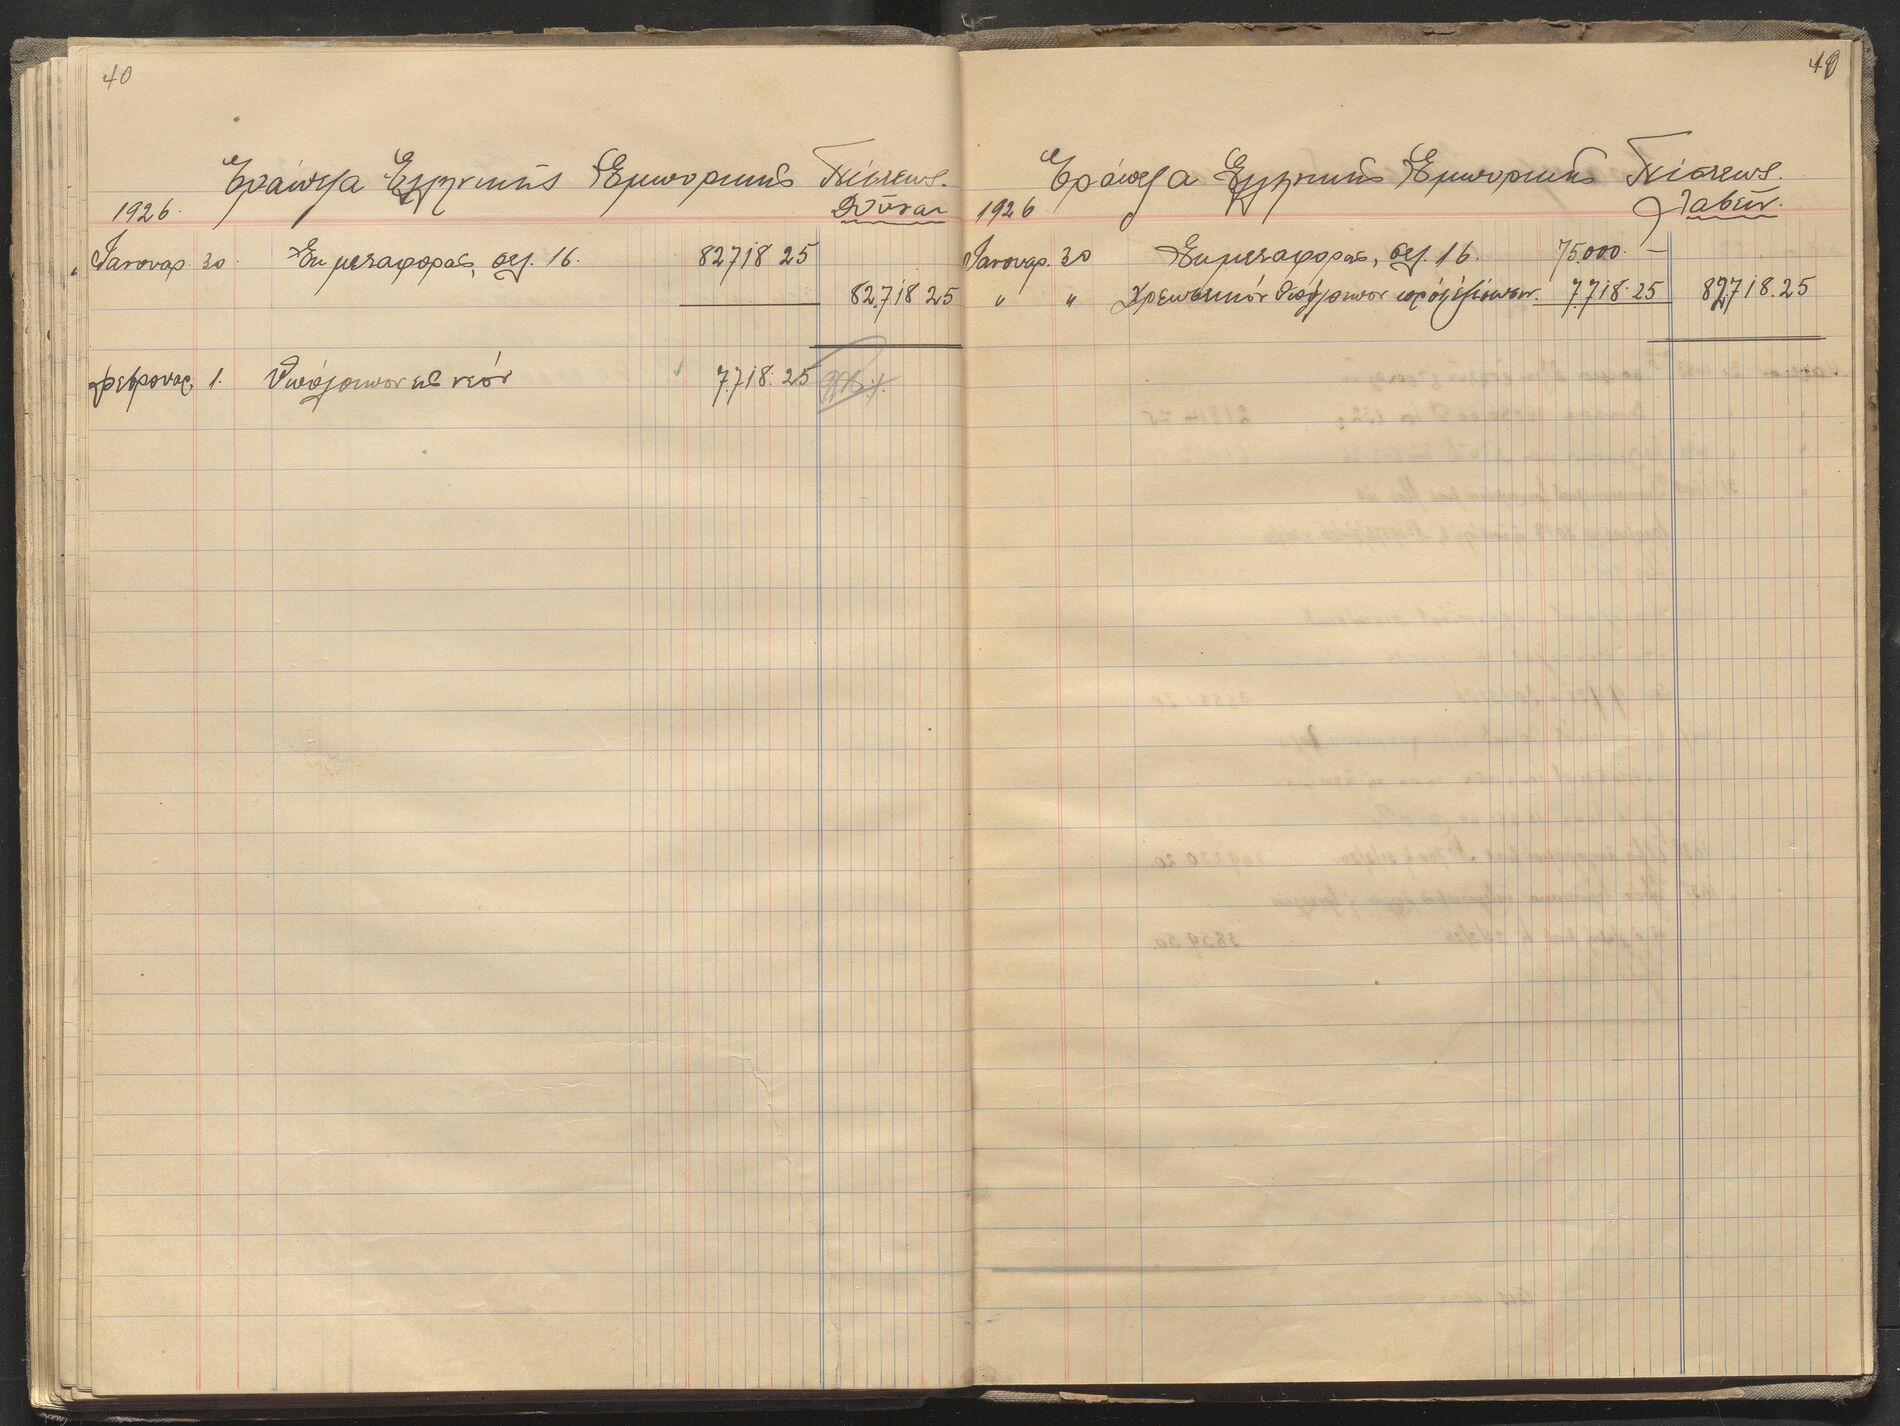 40
Τράπεζα Ελληνικής Εμπορικής Πίστεως.
1926. Δούναι
Ιανουαρ. 30. Εκ μεταφοράς, σελ. 16. 82718 25
82.718 25
Φεβρουαρ. 1. Υπόλοιπον εις νέον 7.718.25
40
Τράπεζα Ελληνικής Εμπορικής Πίστεως.
1926 Λαβείν.
Ιανουαρ. 30 Εκ μεταφοράς, σελ. 16. 75000. —
" " Χρεωστικόν Υπόλοιπον προς εξίσωσιν. 7.718.25 82.718.25